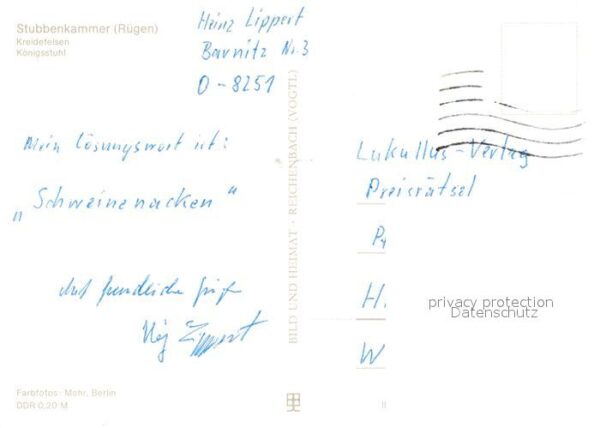 Stubbenkammer (Rügen)
Kreidefelsen
Königsstuhl
Heinz Lippert
Barnitz Nr. 3
O-8251
Mein Lösungswort ist:
„Schweinenacken"
Mit freundlichen Grüßen
Lippert
Farbfotos: Mohr, Berlin
DDR 0,20 M
BILD UND HEIMAT · REICHENBACH (VOGTL)
Lukullus-Verlag
Preisrätsel
H.
W
privacy protection
Datenschutz
II